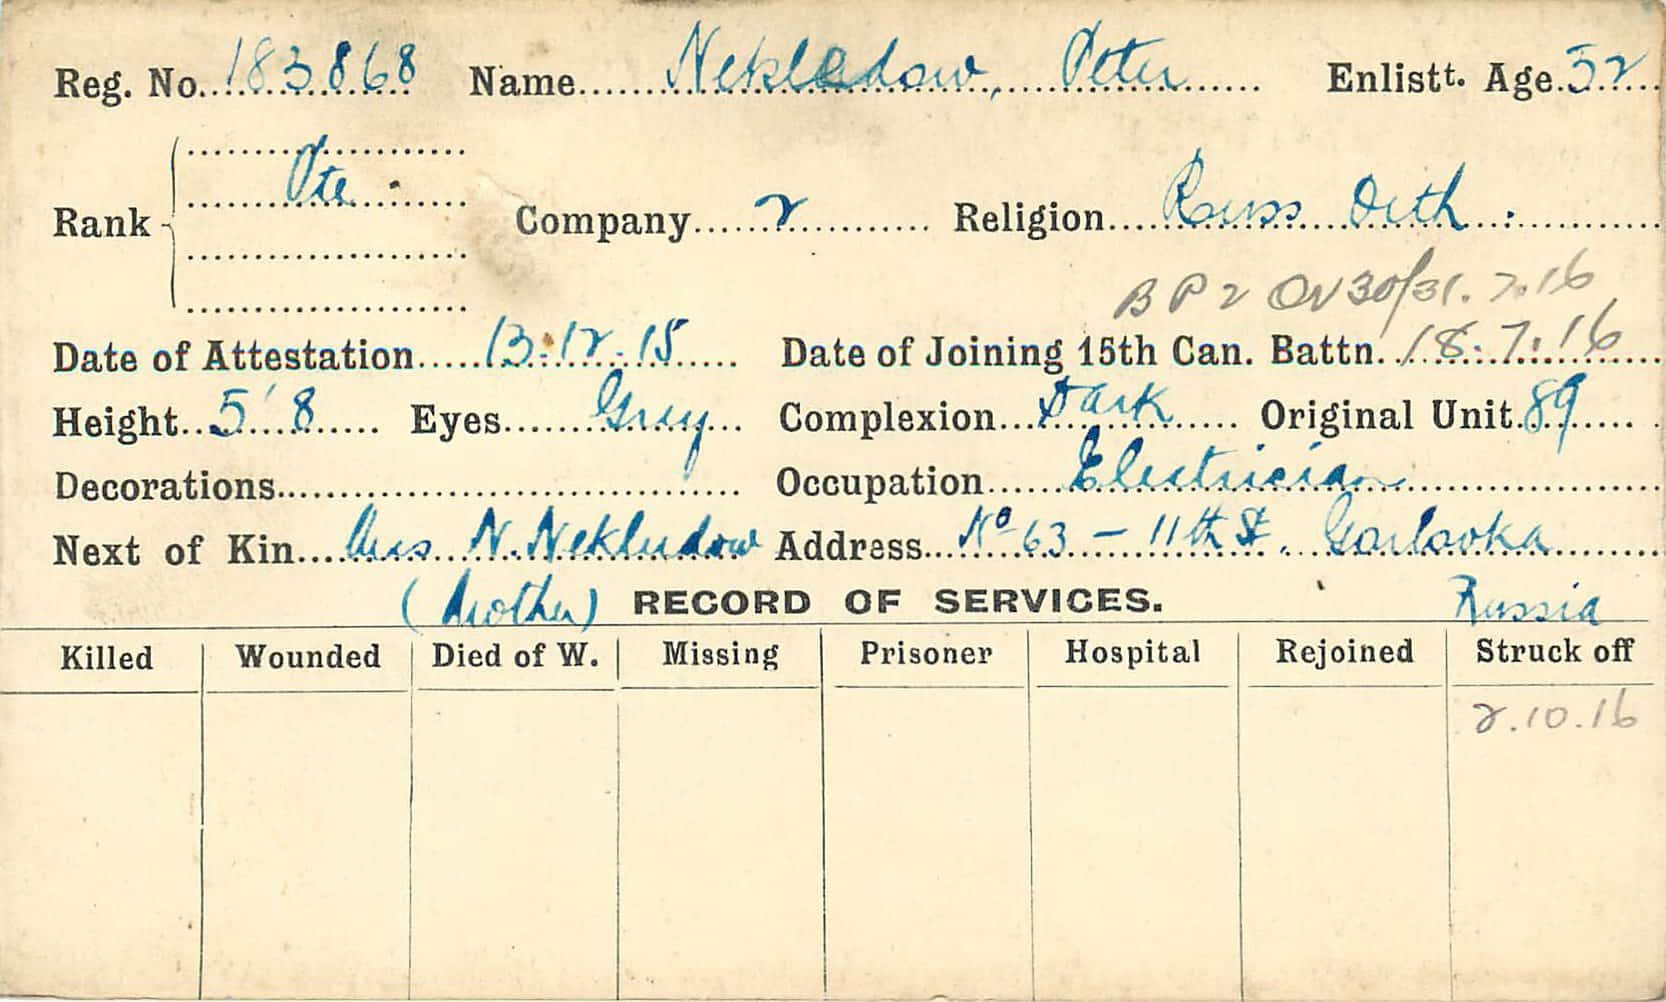 Reg. No. 183868 Name Nekledow, Peter Enlistt. Age. 32
Rank Pte. Company 2 Religion Russ Orth.
B P 2 Ov 30/31.7.16
Date of Attestation 13.12.15 Date of Joining 15th Can. Battn. 18.7.16
Height 5'8 Eyes Grey Complexion Dark Original Unit 89
Decorations Occupation Electrician
Next of Kin Mrs. N. Nekludow Address No 63 - 11th St. Gorlovka
(Mother) RECORD OF SERVICES. Russia
Killed Wounded Died of W. Missing Prisoner Hospital Rejoined Struck off
2.10.16